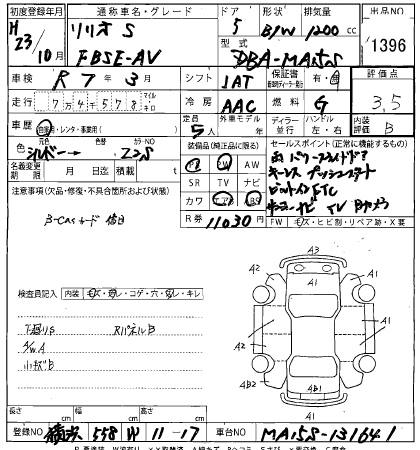 初度登録年月 通称車名・グレード ドア 形状 排気量 出品No
H 23 10月 ソリオ S 5 B/W 1200cc 1396
FBSE-AV 型式 DBA-MA15S
車検 R 7年 3月 シフト IAT 保証書 有・無 評価点
走行 7万4千578 マイル キロ 冷房 AAC 燃料 G 3,5
車歴 自家用・レンタ・事業用( ) 定員 5人 外車モデル 年 ディーラー 並行 ハンドル 左・右 内装評価 B
色 元色 シルバー 色替 カラーNO Z2S
名義変更期限 月 日 積載 t
装備品(純正品に限る)
PS PW AW
SR TV ナビ
カワ エアB ABS
R券 11030円
セールスポイント(正常に機能するもの)
両パワースライドドア
キーレス プッシュスタート
ビルトインETC
ナビ TV Bカメラ
注意事項(欠品・修復・不具合箇所および状態)
B-CASカード 後日
FW キズ・ヒビ割・リペア跡・X要
検査員記入 内装 キズ・汚レ・コゲ・穴・切レ・キレ
下廻りS RパネルB
A/W A
小キズB
A3
A2 A1 A1
A1
A2 A1
A2
4B2 4B1 A1
A1
長さ cm 幅 cm 高さ cm
登録NO 横浜 558 W 11-17 車台NO MA15S-131641